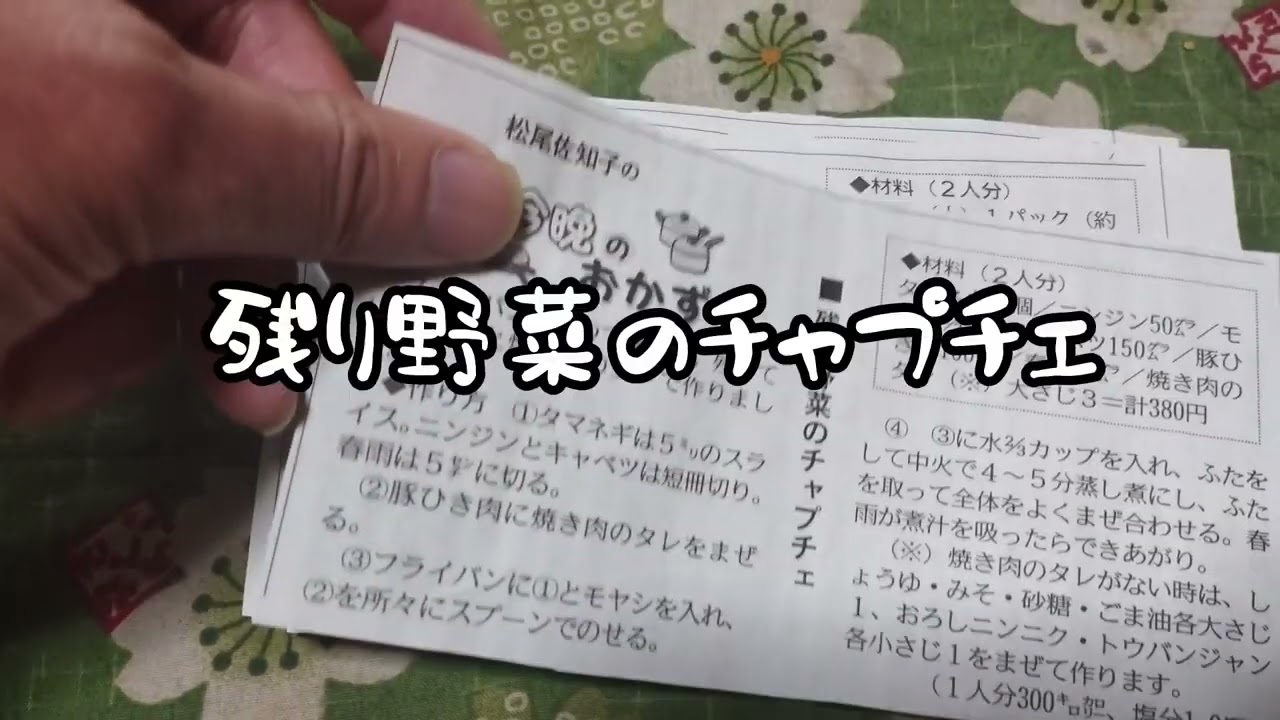 残り野菜のチャプチェ
松尾佐知子の
今晩の
おかず
て作りまし
◆作り方 ①タマネギは５㍉のスラ
イス。ニンジンとキャベツは短冊切り。
春雨は５㌢に切る。
②豚ひき肉に焼き肉のタレをまぜ
る。
③フライパンに①とモヤシを入れ、
②を所々にスプーンでのせる。
菜のチャプチェ
◆材料（２人分）
パック（約
◆材料（２人分）
個／ニンジン50㌘／モ
150㌘／豚ひ
／焼き肉の
（※）大さじ３＝計380円
④ ③に水⅔カップを入れ、ふたを
して中火で４～５分蒸し煮にし、ふた
を取って全体をよくまぜ合わせる。春
雨が煮汁を吸ったらできあがり。
（※）焼き肉のタレがない時は、し
ょうゆ・みそ・砂糖・ごま油各大さじ
１、おろしニンニク・トウバンジャン
各小さじ１をまぜて作ります。
（１人分300㌔㌍、塩分1
さくら